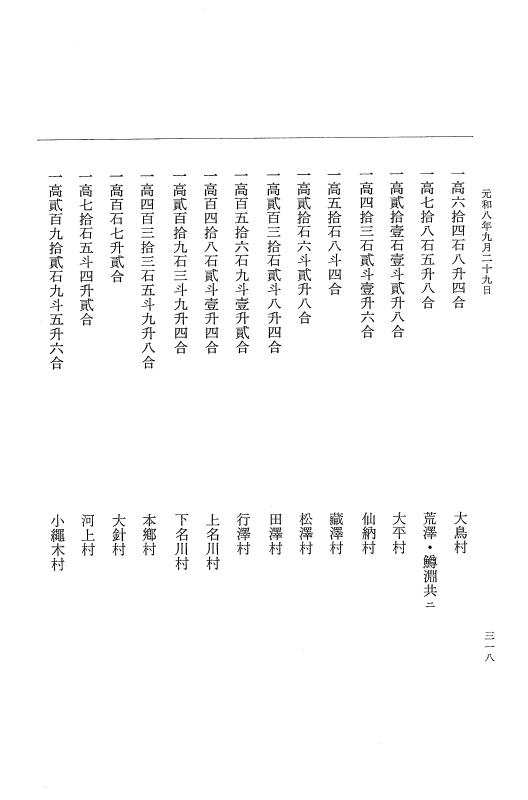 元和八年九月二十九日
三一八
一高六拾四石八升四合 大鳥村
一高七拾八石五升八合 荒澤・鱒淵共ニ
一高貳拾壹石壹斗貳升八合 大平村
一高四拾三石貳斗壹升六合 仙納村
一高五拾石八斗四合 藏澤村
一高貳拾石六斗貳升八合 松澤村
一高貳百三拾石貳斗八升四合 田澤村
一高百五拾六石九斗壹升貳合 行澤村
一高百四拾八石貳斗壹升四合 上名川村
一高貳百拾九石三斗九升四合 下名川村
一高四百三拾三石五斗九升八合 本鄕村
一高百石七升貳合 大針村
一高七拾石五斗四升貳合 河上村
一高貳百九拾貳石九斗五升六合 小繩木村